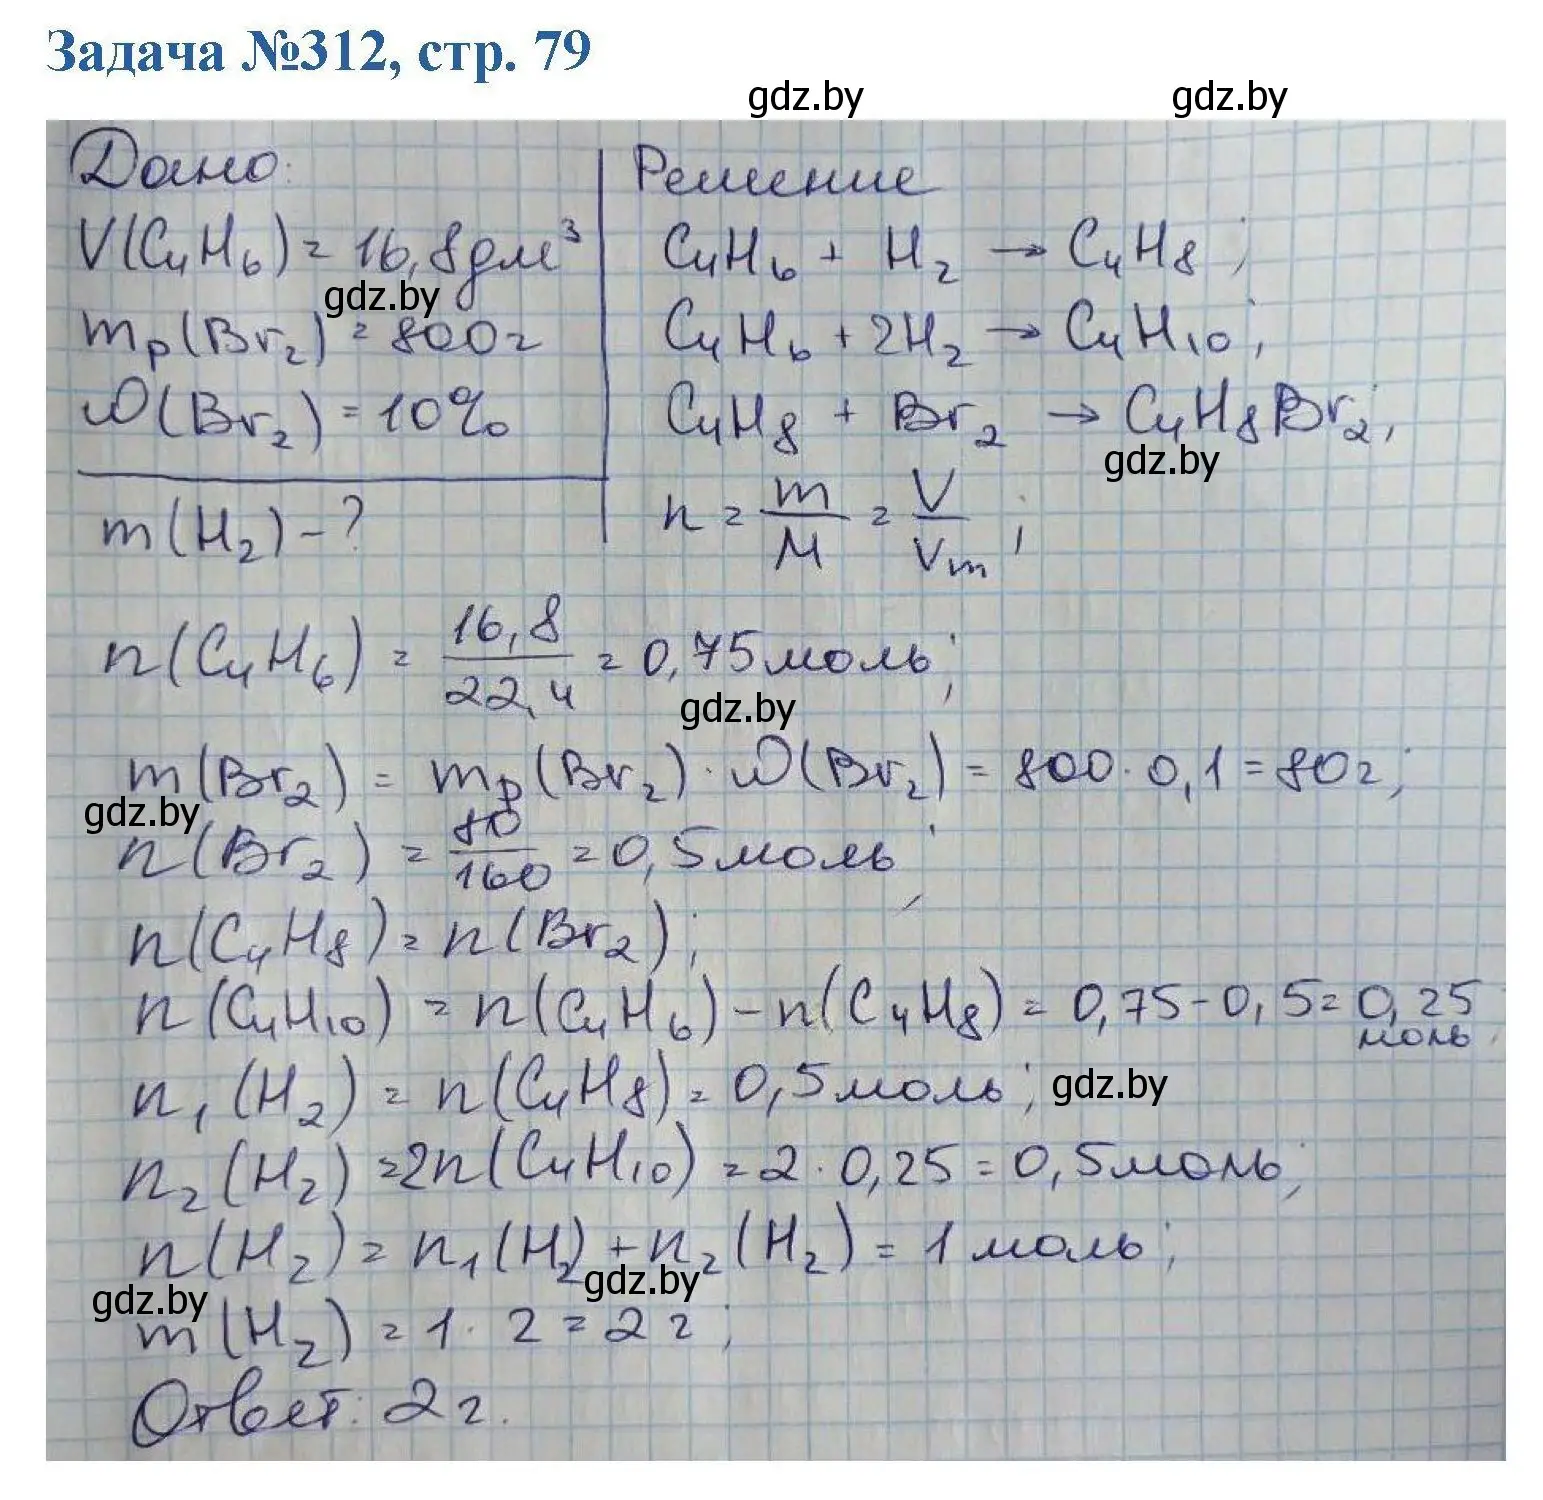 Задача №312, стр. 79
gdz.by gdz.by
Дано: Решение
V(C₄H₆) = 16,8 дм³ C₄H₆ + H₂ → C₄H₈;
gdz.by
mр(Br₂) = 800 г C₄H₆ + 2H₂ → C₄H₁₀;
ω(Br₂) = 10% C₄H₈ + Br₂ → C₄H₈Br₂;
gdz.by
m(H₂) - ? n = m/M = V/Vm;
n(C₄H₆) = 16,8/22,4 = 0,75 моль;
gdz.by
m(Br₂) = mр(Br₂) · ω(Br₂) = 800 · 0,1 = 80 г;
gdz.by
n(Br₂) = 80/160 = 0,5 моль;
n(C₄H₈) = n(Br₂);
n(C₄H₁₀) = n(C₄H₆) - n(C₄H₈) = 0,75 - 0,5 = 0,25 моль
n₁(H₂) = n(C₄H₈) = 0,5 моль; gdz.by
n₂(H₂) = 2n(C₄H₁₀) = 2 · 0,25 = 0,5 моль;
n(H₂) = n₁(H₂) + n₂(H₂) = 1 моль;
gdz.by gdz.by
m(H₂) = 1 · 2 = 2 г;
Ответ: 2 г.